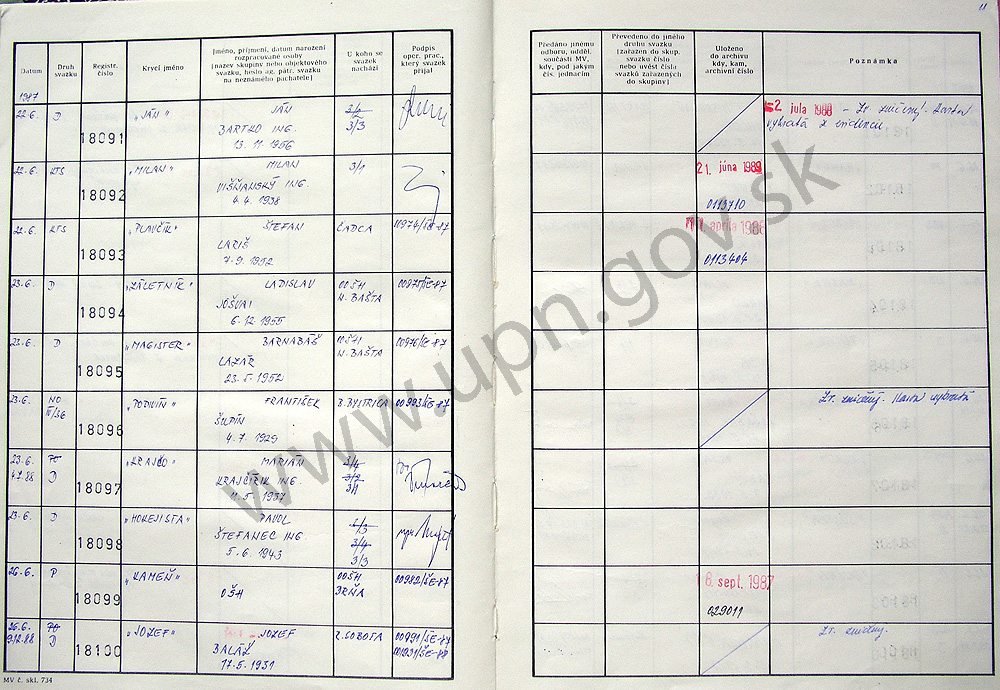 11
Datum
Druh svazku
Registr. číslo
Krycí jméno
Jméno, příjmení, datum narození
rozpracované osoby
(název skupiny nebo objektového
svazku, heslo ag. pátr. svazku
na neznámého pachatele)
U koho se
svazek
nachází
Podpis
oper. prac.,
který svazek
přijal
Předáno jinému
odboru, odděl.
součásti MV,
kdy, pod jakým
čís. jednacím
Převedeno do jiného
druhu svazku
(zařazen do skup.
svazku číslo
nebo uvést čísla
svazků zařazených
do skupiny)
Uloženo
do archivu
kdy, kam,
archivní číslo
Poznámka
1987
22.6. D 18091 „JÁN" JÁN 3/2
BARTKO ING. 3/3
13. 11. 1956
2 júla 1986 - Zv. zničený.
vybratá z evidencie
22.6. KTS 18092 „MILAN" MILAN 3/1
VIŠŇANSKÝ ING.
4. 4. 1938
21. júna 1989
0113710
22.6. KTS 18093 „PLAVČÍK" ŠTEFAN ČADCA 00974/ŠE-87
LARIŠ
7. 9. 1952
apríla 1988
0113404
23.6. D 18094 „ZÁLETNÍK" LADISLAV OOŠH 00975/ŠE-87
JÓŠVAI N. BAŠTA
6. 12. 1955
23.6. D 18095 „MAGISTER" BARNABÁŠ OOŠH 00976/ŠE-87
LAZÁR N. BAŠTA
23. 5. 1952
23.6. NO 18096 „PODIVÍN" FRANTIŠEK B. BYSTRICA 00993/ŠE-87
III/36 ŠUPÍN
4. 7. 1929
Zv. zničený. Karta vybratá
23.6. PO 18097 „KRAJČO" MARIÁN 3/4
4.2.88 D KRAJČIŘÍK ING. 3/2
11. 5. 1937 3/1
23.6. D 18098 „HOKEJISTA" PAVOL 6/3
ŠTEFANEC ING. 3/4
5. 6. 1943 3/3
26.6. P 18099 „KAMEŇ" OOŠH 00982/ŠE-87
OŠH BRŇA
6. sept. 1987
029011
26.6. PO 18100 „JOZEF" JOZEF R. SOBOTA 00991/ŠE-87
9.12.88 D BALÁŽ 001931/ŠE-88
17. 5. 1931
Zv. zničený.
MV č. skl. 734
www.upn.gov.sk